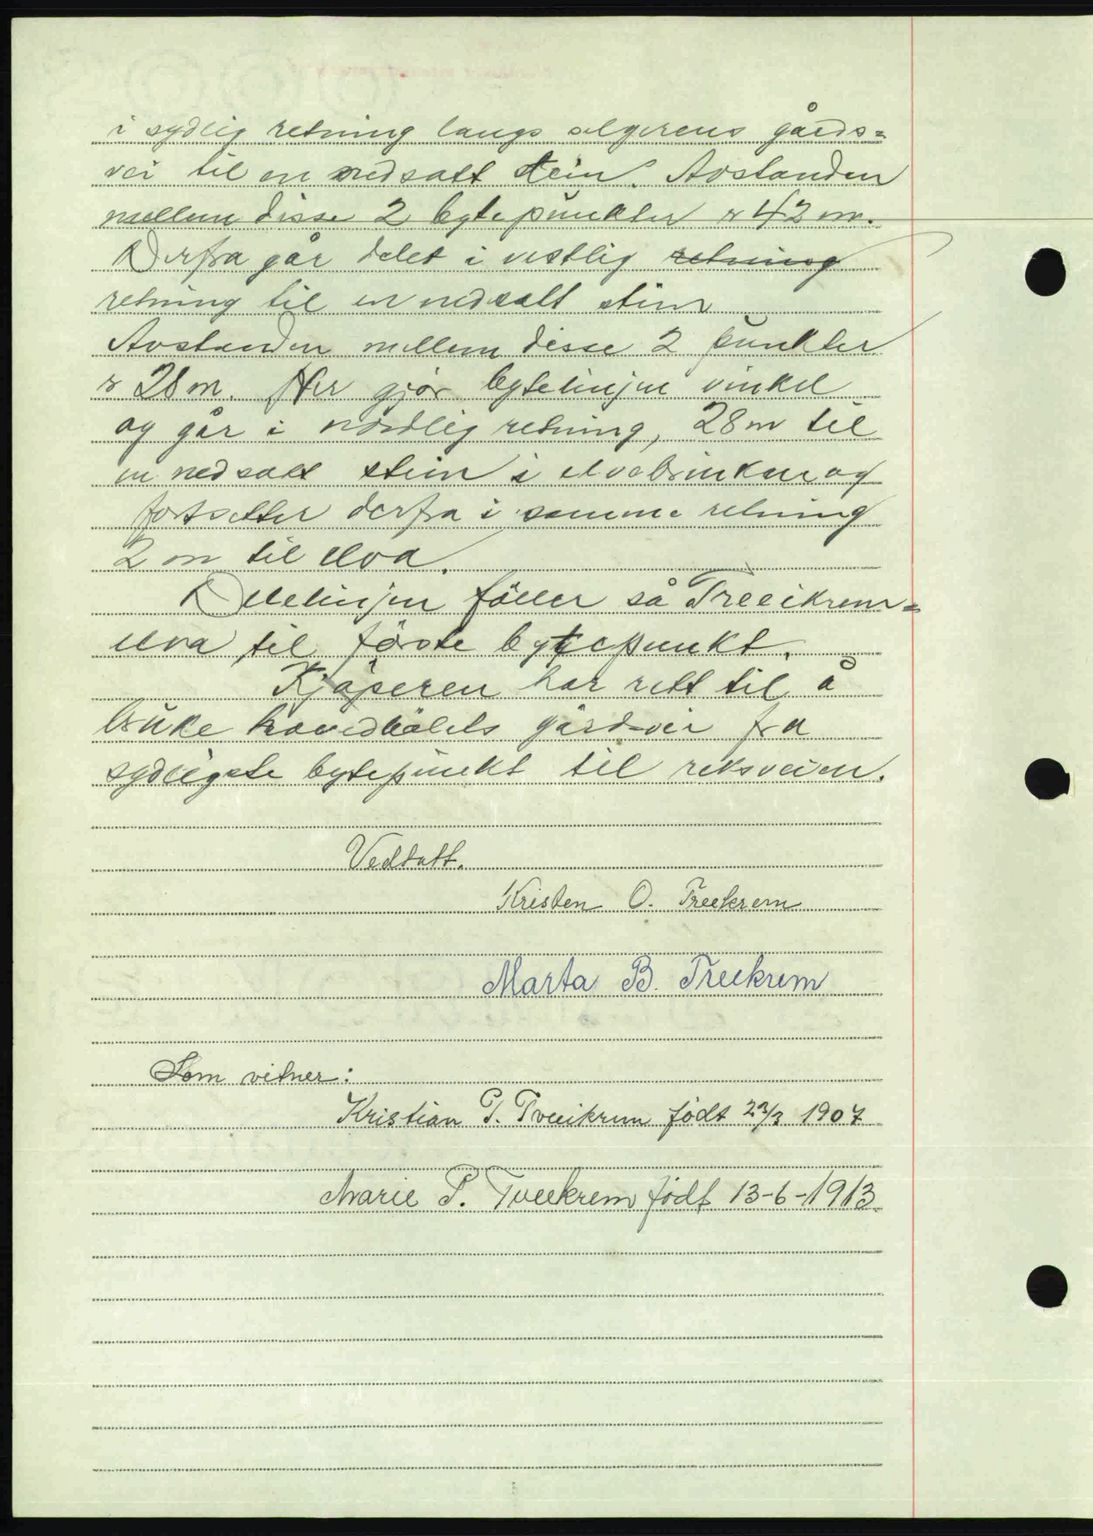 i sydlig retning langs selgerens gårds=
vei til en nedsatt stein. Avstanden
mellem disse 2 bytepunkter er 42 m.
Derfra går delet i vestlig retning
retning til en nedsatt stein
Avstanden mellem disse 2 punkter
er 28 m. Her gjör bytelinjen vinkel
og går i nordlig retning, 28 m til
en nedsatt stein i elvebrinken og
fortsetter derfra i samme retning
2 m til elva.
Delelinjen föller så Treeikrem=
elva til förste bytepunkt.
Kjöperen har rett til å
bruke hovedbölets gårdsvei fra
sydligste bytepunkt til riksveien.
Vedtatt.
Kristen O. Treekrem
Marta B. Treekrem
Som vitner:
Kristian P. Tveeikrem födt 22/3 1907
Marie P. Tveekrem födt 13-6-1913